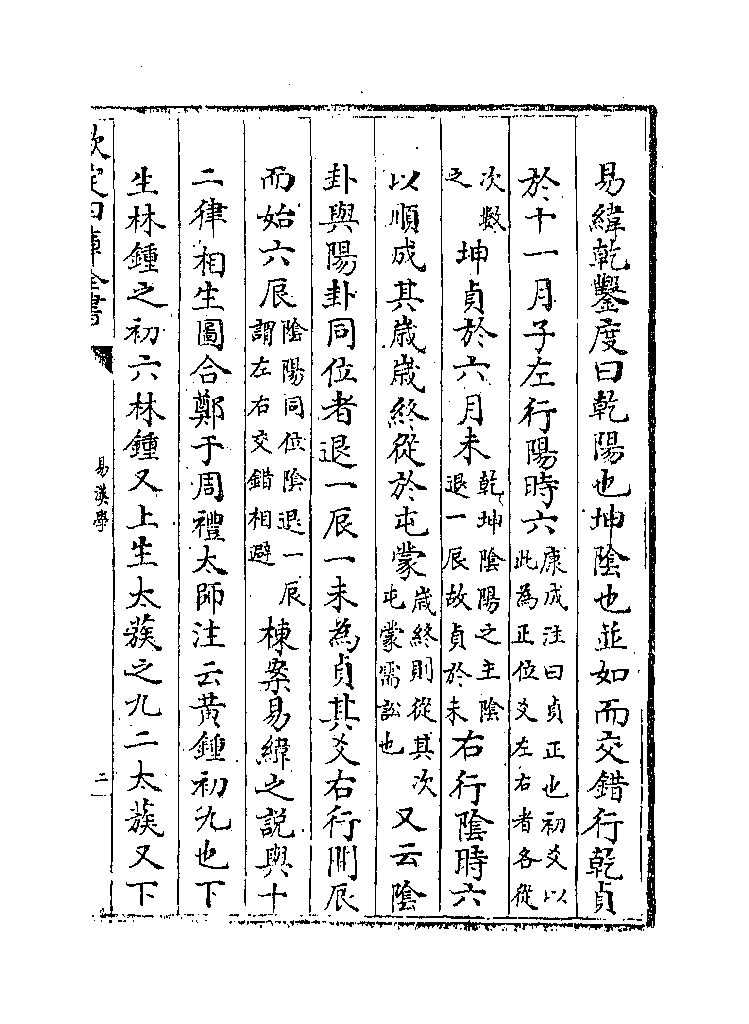 易緯乾鑿度曰乾陽也坤隂也並如而交錯行乾貞
於十一月子左行陽時六康成注曰貞正也初爻以此為正位爻左右者各從
次數之坤貞於六月未乾坤隂陽之主隂退一辰故貞於未右行隂時六
以順成其歳歳終從於屯蒙歳終則從其次屯蒙需訟也又云隂
卦與陽卦同位者退一辰一未為貞其爻右行間辰
而始六辰隂陽同位隂退一辰謂左右交錯相避棟案易緯之說與十
二律相生圖合鄭于周禮太師注云黄鍾初九也下
生林鍾之初六林鍾又上生太蔟之九二太蔟又下
欽定四庫全書
易漢學
二